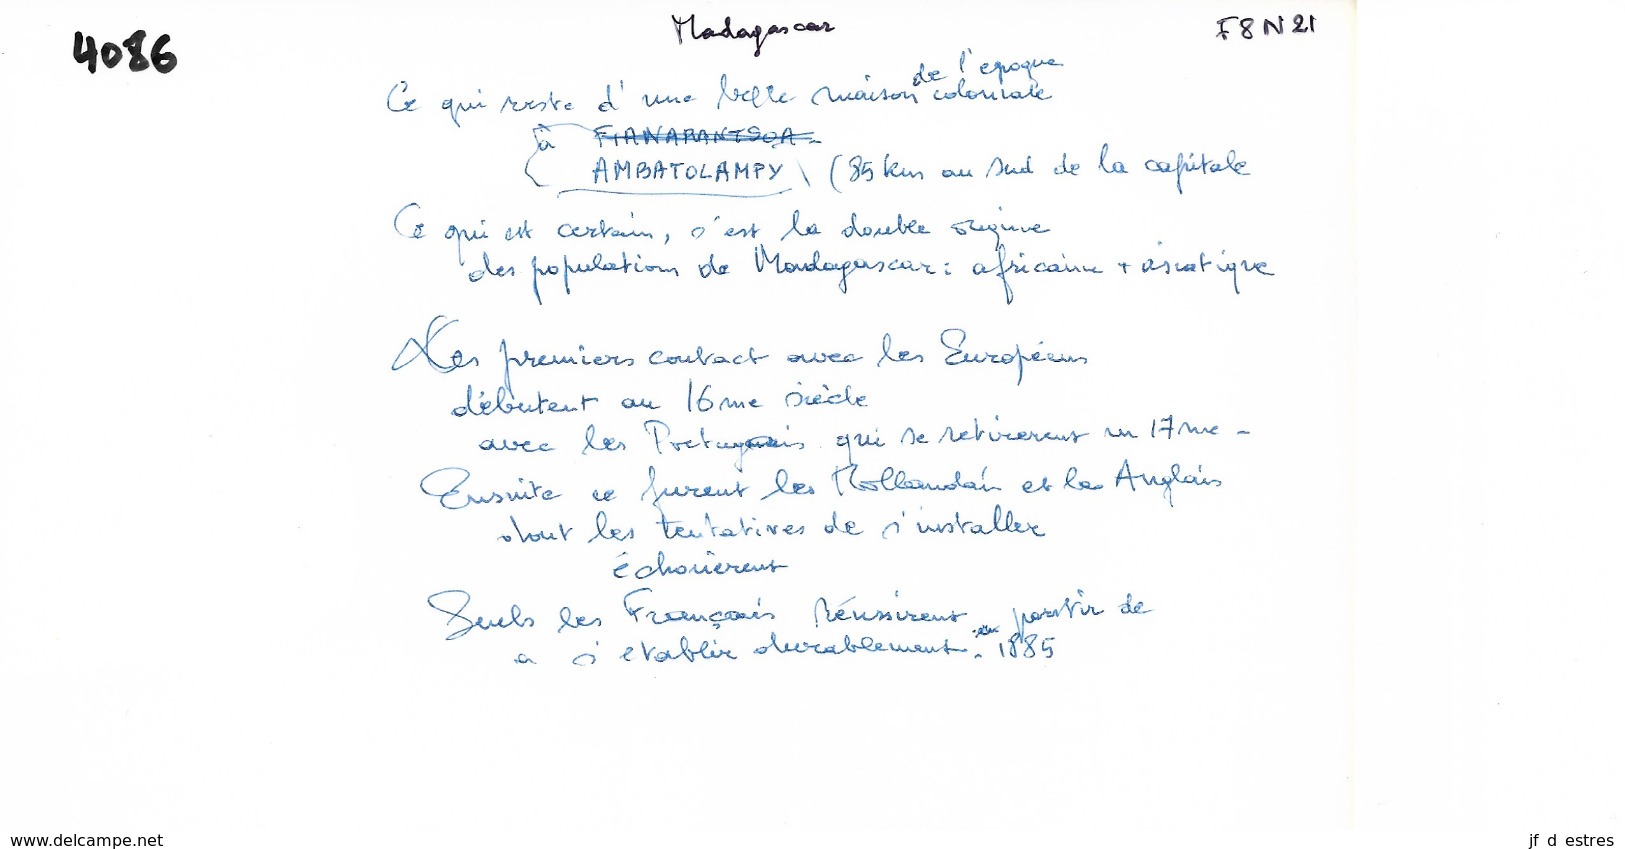 Madagascar
F8N21
4086
Ce qui reste d'une belle maison de l'epoque coloniale
à FIANARANTSOA
AMBATOLAMPY (85 km au sud de la capitale
Ce qui est certain, c'est la double origine
des populations de Madagascar : africaine + asiatique
Les premiers contact avec les Européens
débutent au 16me siècle
avec les Portugais qui se retirerent au 17me -
Ensuite ce furent les Hollandais et les Anglais
dont les tentatives de s'installer
échouèrent
Seuls les Français réussirent à partir de
a s'etablir durablement. 1885
www.delcampe.net
jf d estres